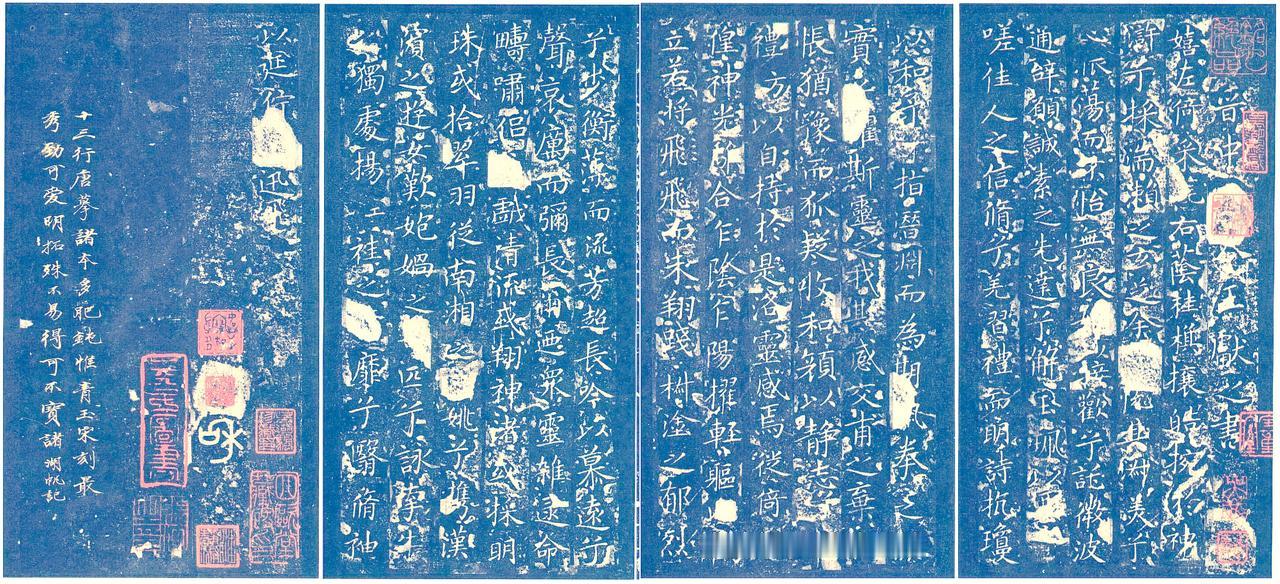 晉中王獻之書
嬉左倚采旄右蔭桂旗攘皓捥於神
滸兮採湍瀨之玄芝余悅其淑美兮
心振蕩而不怡無良以接歡兮託微波
通辭願誠素之先達兮解玉珮以要
嗟佳人之信脩兮羌習禮而明詩抗瓊
以和予兮指潛淵而為期執拳之
實懼斯靈之我欺感交甫之棄
悵猶豫而狐疑收和顏以靜志
禮方以自持於是洛靈感焉徙倚
徨神光離合乍陰乍陽擢輕軀
立若將飛飛而未翔踐椒塗之郁烈
兮步衡薄而流芳超長吟以慕遠兮
聲哀厲而彌長爾迺眾靈雜遝命
疇嘯侶戲清流或翔神渚或採明
珠或拾翠羽從南湘之姚兮攜漢
濱之遊女歎匏媧之匹兮詠牽牛
之獨處揚輕袿之靡兮翳脩袖
以延佇迅飛
和
十三行唐摹諸本多肥鈍惟青玉宋刻最
秀勁可愛明拓殊不易得可不寶諸湖帆記